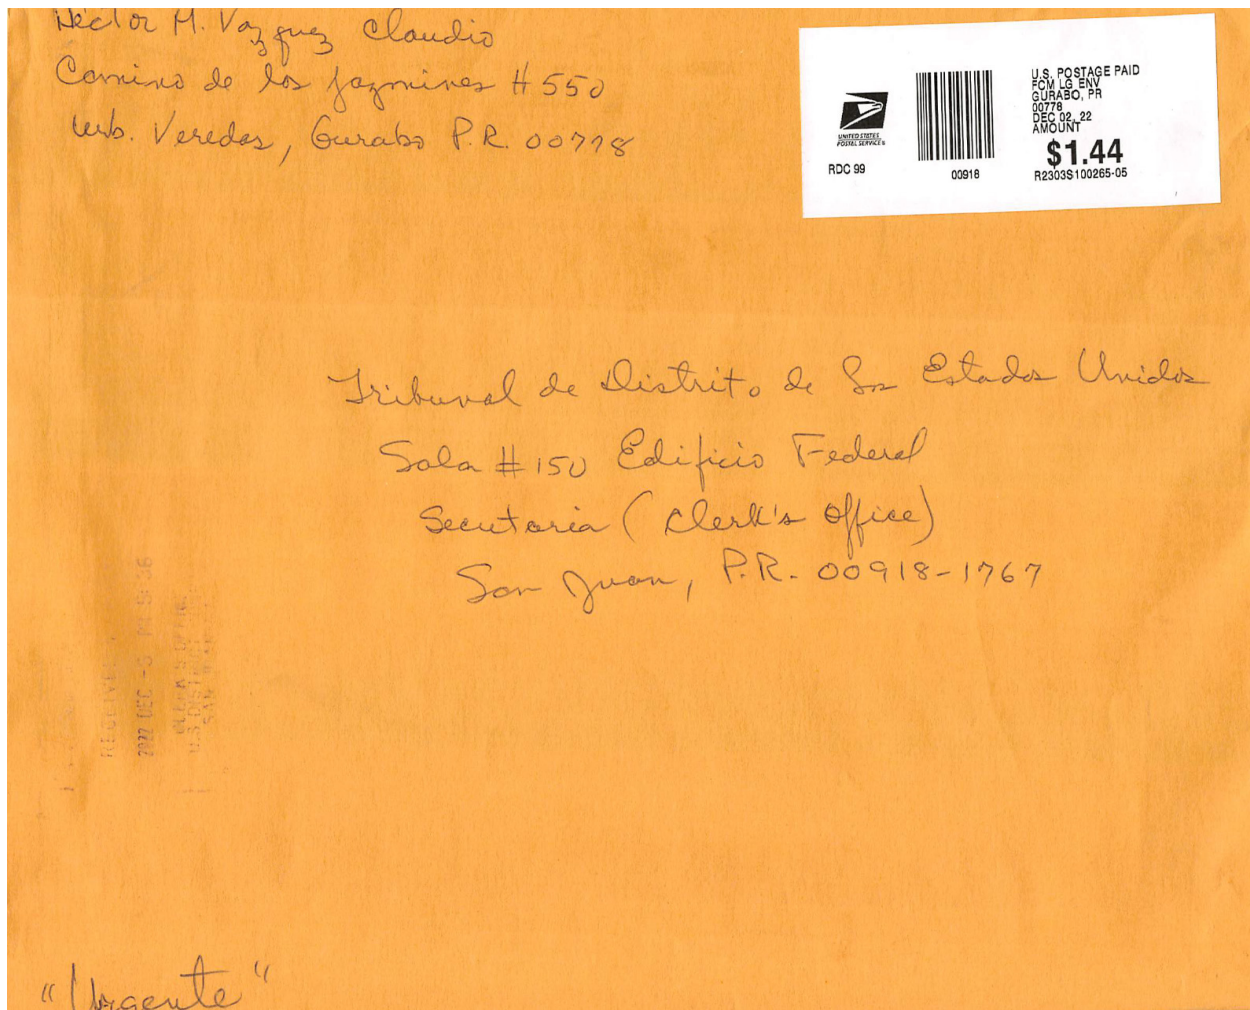 Héctor M. Vazquez Claudio
Camino de los Jazmines # 550
Urb. Veredas, Gurabo P.R. 00778
UNITED STATES
POSTAL SERVICE®
RDC 99
00918
U.S. POSTAGE PAID
FCM LG ENV
GURABO, PR
00778
DEC 02, 22
AMOUNT
$1.44
R2303S100265-05
Tribunal de Distrito de los Estados Unidos
Sala # 150 Edificio Federal
Secretaria (Clerk's Office)
San Juan, P.R. 00918-1767
RECEIVED
2022 DEC PM 5:36
CLERK'S OFFICE
U.S. DISTRICT
"Urgente"